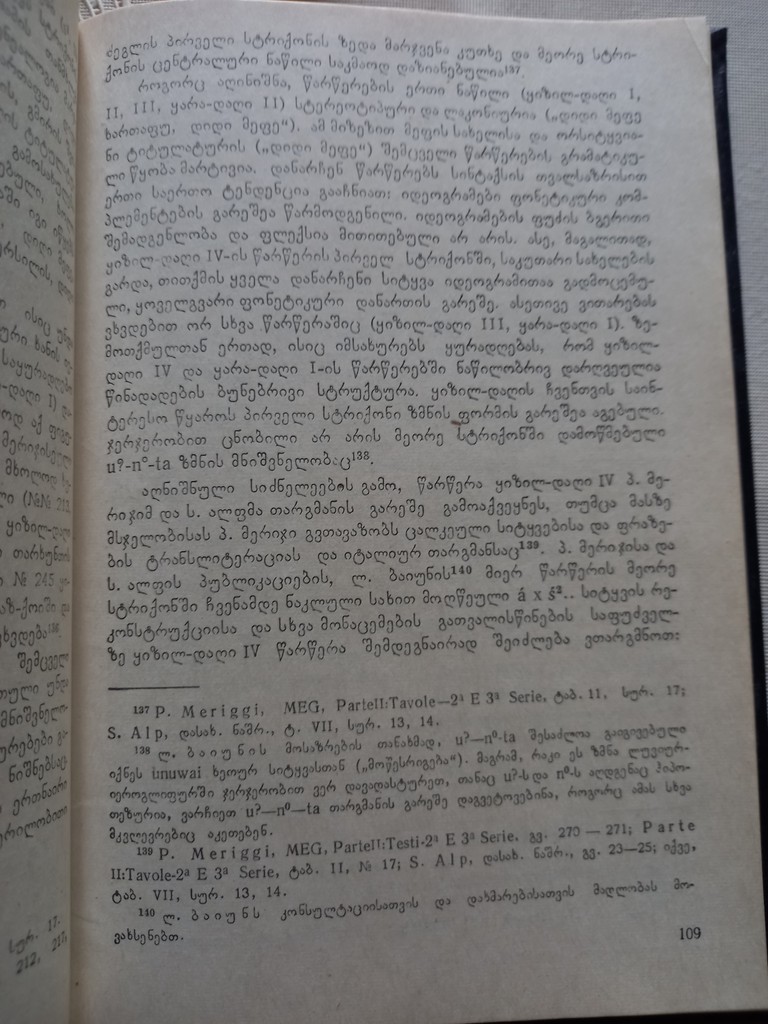 ძეგლის პირველი სტრიქონის ზედა მარჯვენა კუთხე და მეორე სტრი-
ქონის ცენტრალური ნაწილი საკმაოდ დაზიანებულია¹³⁷.
როგორც აღინიშნა, წარწერების ერთი ნაწილი (ყიზილ-დაღი 1,
II, III, ყარა-დაღი II) სტერეოტიპური და ლაკონიურია („დიდი მეფე
ხართაფუ, დიდი მეფე“). ამ მიზეზით მეფის სახელისა და ორსიტყვია-
ნი ტიტულატურის („დიდი მეფე“) შემცველი წარწერების გრამატიკუ-
ლი წყობა მარტივია. დანარჩენ წარწერებს სინტაქსის თვალსაზრისით
ერთი საერთო ტენდენცია გააჩნიათ: იდეოგრამები ფონეტიკური კომ-
პლემენტების გარეშეა წარმოდგენილი. იდეოგრამების ფუძის ბგერითი
შემადგენლობა და ფლექსია მითითებული არ არის. ასე, მაგალითად,
ყიზილ-დაღი IV-ის წარწერის პირველ სტრიქონში, საკუთარი სახელების
გარდა, თითქმის ყველა დანარჩენი სიტყვა იდეოგრამითაა გადმოცემუ-
ლი, ყოველგვარი ფონეტიკური დანართის გარეშე. ასეთივე ვითარებას
ვხვდებით ორ სხვა წარწერაშიც (ყიზილ-დაღი III, ყარა-დაღი I). ზე-
მოთქმულთან ერთად, ისიც იმსახურებს ყურადღებას, რომ ყიზილ-
დაღი IV და ყარა-დაღი I-ის წარწერებში ნაწილობრივ დარღვეულია
წინადადების ბუნებრივი სტრუქტურა. ყიზილ-დაღის ჩვენთვის საინ-
ტერესო წყაროს პირველი სტრიქონი ზმნის ფორმის გარეშეა აგებული.
ჯერჯერობით ცნობილი არ არის მეორე სტრიქონში დამოწმებული
u?-n°-ta ზმნის მნიშვნელობაც¹³⁸.
აღნიშნული სიძნელეების გამო, წარწერა ყიზილ-დაღი IV პ. მე-
რიჯიმ და ს. ალფმა თარგმანის გარეშე გამოაქვეყნეს, თუმცა მასზე
მსჯელობისას პ. მერიჯი გვთავაზობს ცალკეული სიტყვებისა და ფრაზე-
ბის ტრანსლიტერაციას და იტალიურ თარგმანსაც¹³⁹. პ. მერიჯისა და
ს. ალფის პუბლიკაციების, ლ. ბაიუნის¹⁴⁰ მიერ წარწერის მეორე
სტრიქონში ჩვენამდე ნაკლული სახით მოღწეული á x š².. სიტყვის რე-
კონსტრუქციისა და სხვა მონაცემების გათვალისწინების საფუძველ-
ზე ყიზილ-დაღი IV წარწერა შემდეგნაირად შეიძლება ვთარგმნოთ:
¹³⁷ P. Meriggi, MEG, ParteII:Tavole—2ª E 3ª Serie, ტაბ. 11, სურ. 17;
S. Alp, დასახ. ნაშრ., ტ. VII, სურ. 13, 14.
¹³⁸ ლ. ბაიუნის მოსაზრების თანახმად, u?—n°-ta შესაძლოა გაიგივებული
იქნეს unuwai ხეთურ სიტყვასთან („მოწესრიგება“). მაგრამ, რაკი ეს ზმნა ლუვიურ-
იეროგლიფურში ჯერჯერობით ვერ დავადასტურეთ, თანაც u?-ს და n°-ს აღდგენაც ჰიპო-
თეზურია, ვარჩიეთ u?—n°—ta თარგმანის გარეშე დაგვეტოვებინა, როგორც ამას სხვა
მკვლევრებიც აკეთებენ.
¹³⁹ P. Meriggi, MEG, ParteII:Testi-2ª E 3ª Serie, გვ. 270—271; Parte
II:Tavole-2ª E 3ª Serie, ტაბ. II, № 17; S. Alp, დასახ. ნაშრ., გვ. 23—25; იქვე,
ტაბ. VII, სურ. 13, 14.
¹⁴⁰ ლ. ბაიუნს კონსულტაციისათვის და დახმარებისათვის მადლობას მო-
ვახსენებთ.
109